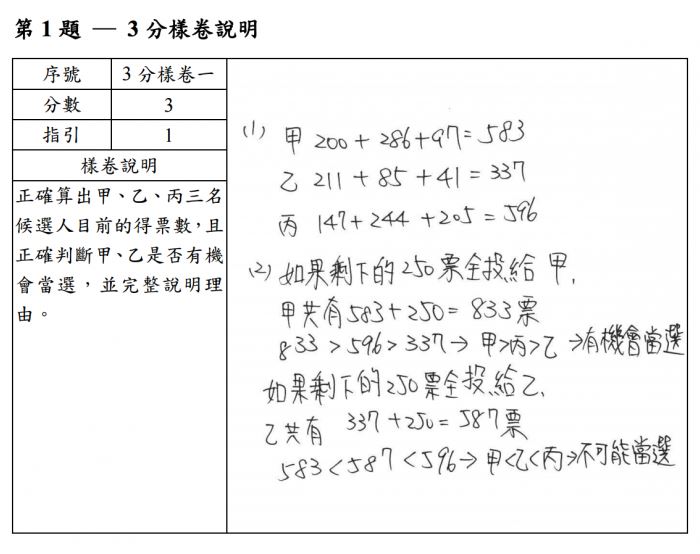 第 1 題 — 3 分樣卷說明
序號 3 分樣卷一
分數 3
指引 1
樣卷說明
正確算出甲、乙、丙三名
候選人目前的得票數，且
正確判斷甲、乙是否有機
會當選，並完整說明理
由。
(1) 甲 200 + 286 + 97 = 583
乙 211 + 85 + 41 = 337
丙 147 + 244 + 205 = 596
(2) 如果剩下的 250 票全投給 甲,
甲共有 583 + 250 = 833 票
833 > 596 > 337 → 甲>丙>乙 →有機會當選
如果剩下的 250 票全投給乙,
乙共有 337 + 250 = 587 票
583 < 587 < 596 → 甲<乙<丙→不可能當選